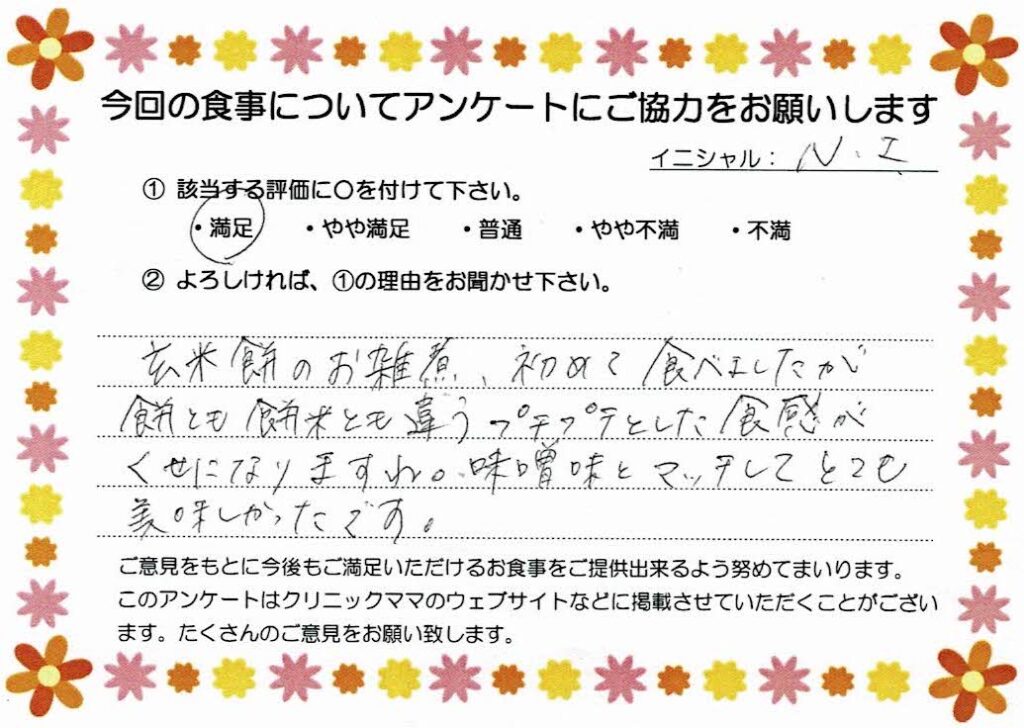 今回の食事についてアンケートにご協力をお願いします
イニシャル： N.I
① 該当する評価に〇を付けて下さい。
・満足 ・やや満足 ・普通 ・やや不満 ・不満
② よろしければ、①の理由をお聞かせ下さい。
玄米餅のお雑煮、初めて食べましたが
餅とも餅米とも違うプチプチとした食感が
くせになりますね。味噌味とマッチしてとても
美味しかったです。
ご意見をもとに今後もご満足いただけるお食事をご提供出来るよう努めてまいります。
このアンケートはクリニックママのウェブサイトなどに掲載させていただくことがござい
ます。たくさんのご意見をお願い致します。